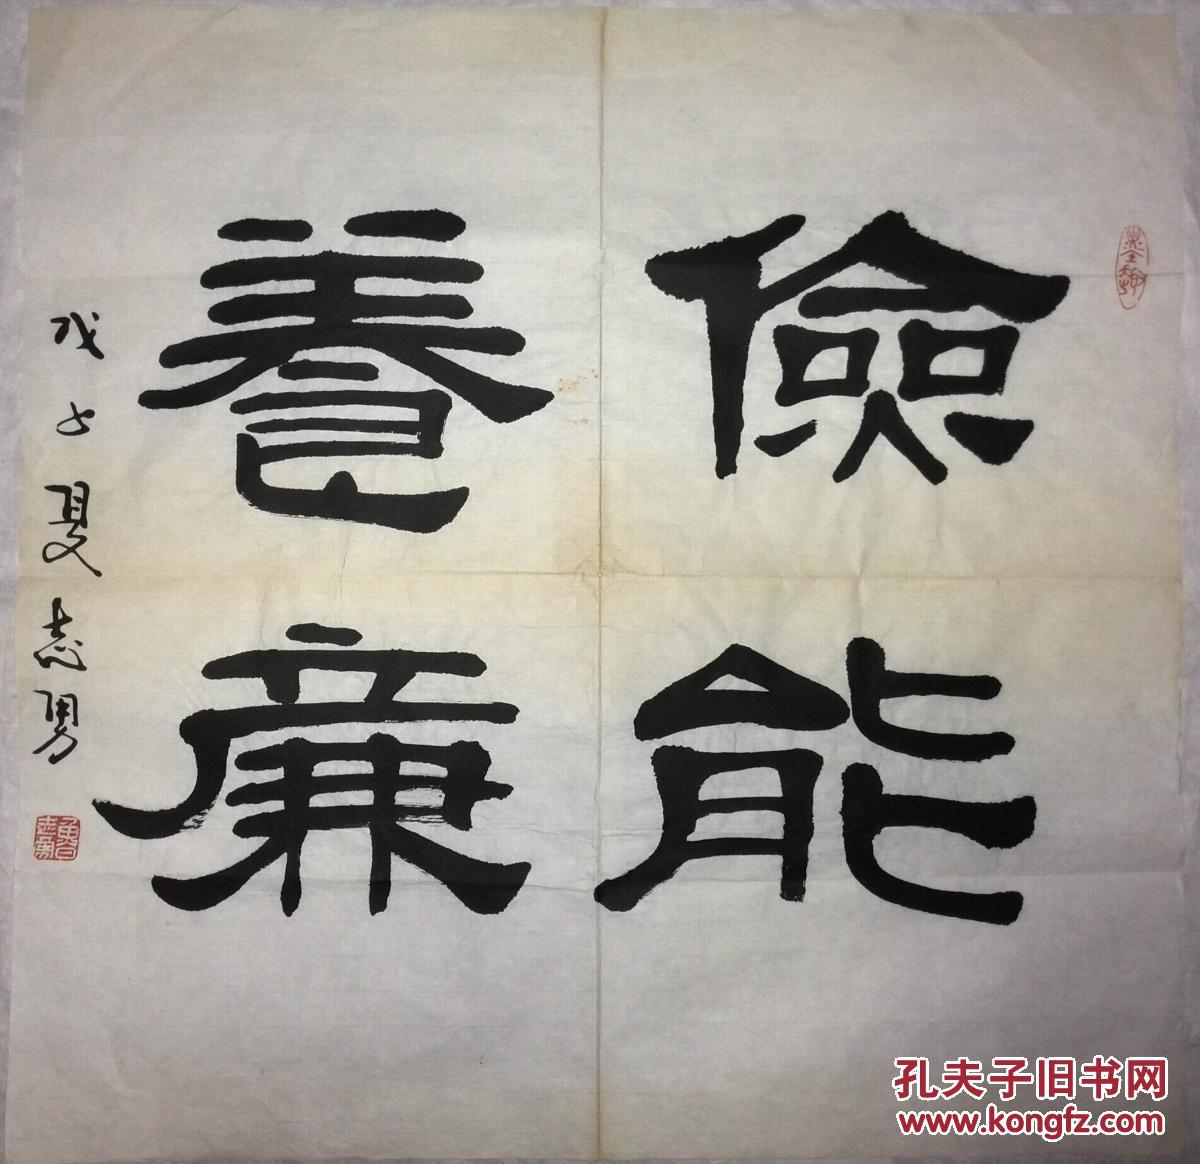 儉能
養廉
戊子夏志勇
墨趣
孔夫子旧书网
www.kongfz.com